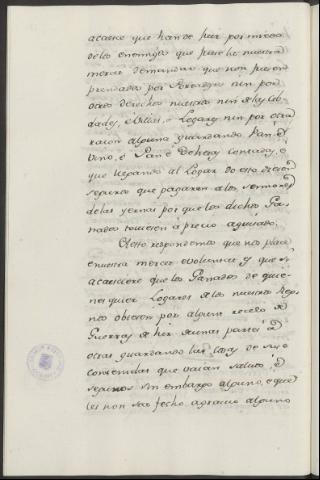 acaesce que han de hir por miedo
de los enemigos que fuese la nuestra
merced demandar que non fuesen
prendados por Portadgos nin por
otros derechos nuestros nin de las Cib-
dades, é Villas, é Logares nin por otra
razon alguna guardando Pan, é
Vino, é Deheza
que llegando al Logar do esto
seguros que pagaren a los Sennores
de las yervas por que los dichos Ga-
nados toviesen á precio aguisado.
A esto respondemos que nos place
é nuestra merced é voluntat y que si
acaesciere que los Ganados de quie-
nes quier Logares de los nuestros Reg-
nos obieren por algunt recelo de
Guerras de hir de unas partes á
otras guardando las cosas de suso
contenidas que vaian salvos, é
seguros sin embargo alguno, é que
les non sea fecho agravio alguno